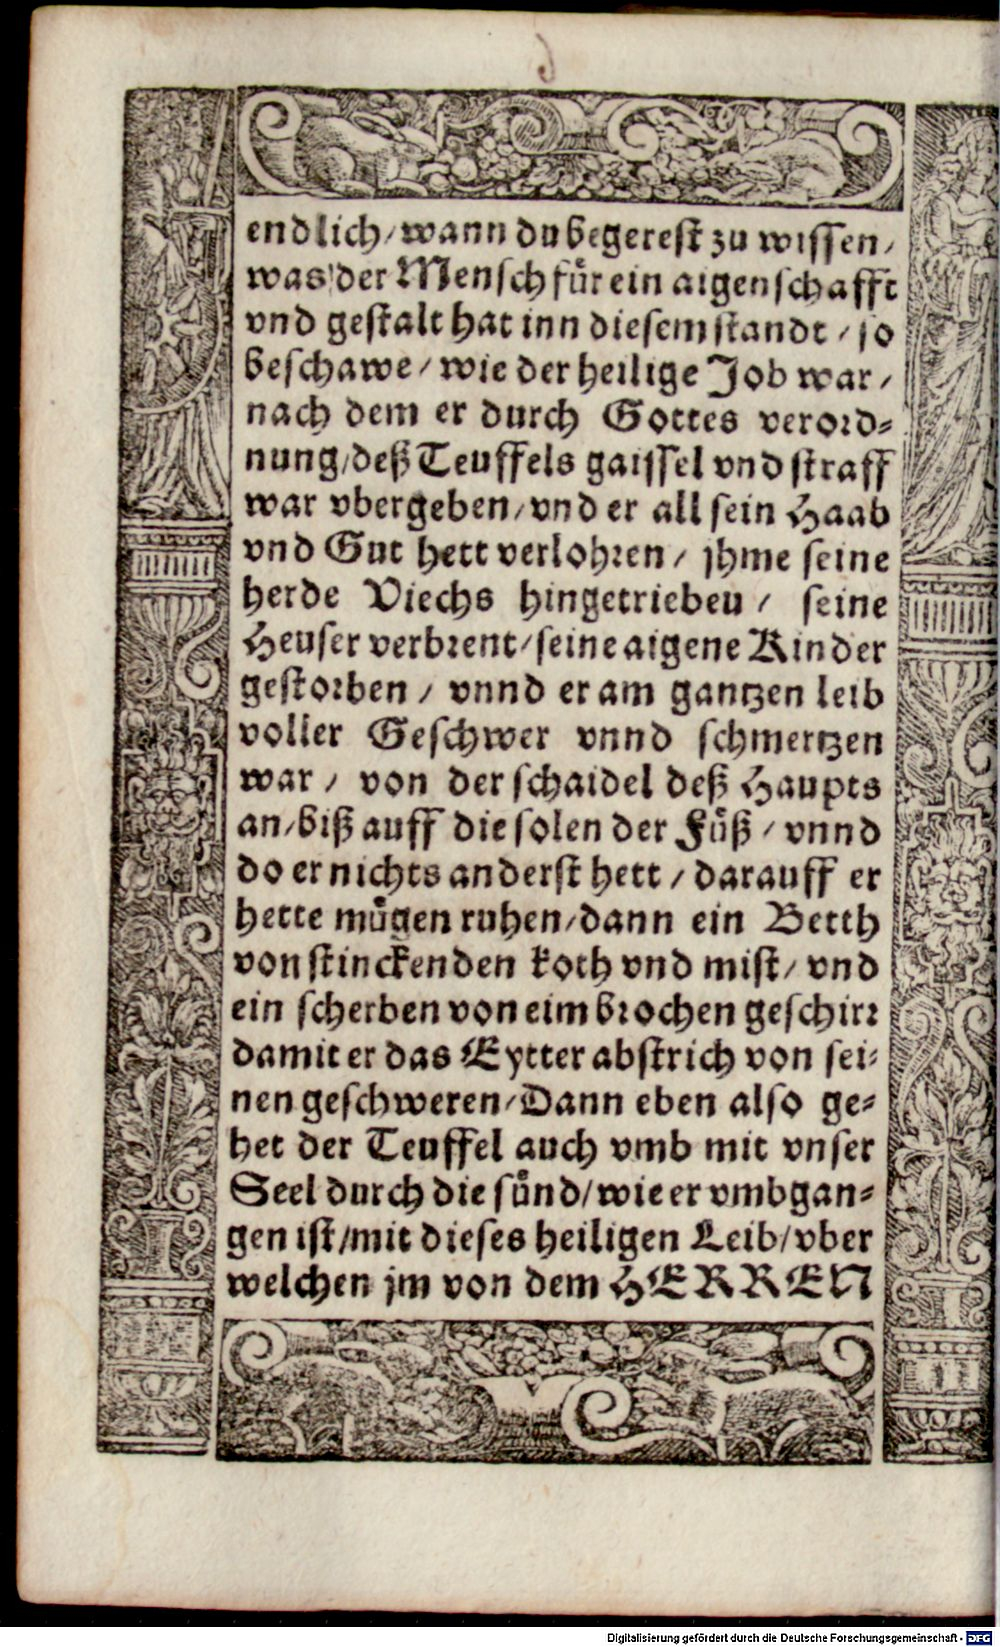 endlich/wann du begerest zu wissen/
was der Mensch für ein aigenschafft
vnd gestalt hat inn diesem standt / so
beschawe / wie der heilige Job war /
nach dem er durch Gottes verord⸗
nung/deß Teuffels gaissel vnd straff
war vbergeben/vnd er all sein Haab
vnd Gut hett verlohren / jhme seine
herde Viechs hingetriebeu / seine
Heuser verbrent/seine aigene Kinder
gestorben / vnnd er am gantzen leib
voller Geschwer vnnd schmertzen
war / von der schaidel deß Haupts
an/biß auff die solen der Füß / vnnd
do er nichts anderst hett / darauff er
hette mügen ruhen/dann ein Betth
von stinckenden koth vnd mist/ vnd
ein scherben von eim brochen geschirr
damit er das Eytter abstrich von sei⸗
nen geschweren/Dann eben also ge⸗
het der Teuffel auch vmb mit vnser
Seel durch die sünd/wie er vmbgan⸗
gen ist/mit dieses heiligen Leib/vber
welchen jm von dem HERREN
Digitalisierung gefördert durch die Deutsche Forschungsgemeinschaft - DFG